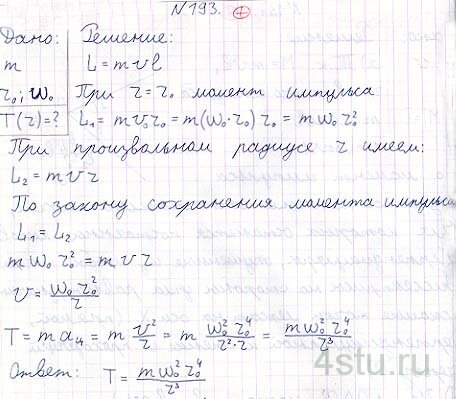 N 193. +
Дано: Решение:
m L = m v l
r₀; w₀ При r = r₀ момент импульса
T(r) = ? L₁ = m v₀ r₀ = m(w₀·r₀) r₀ = m w₀ r₀²
При произвольном радиусе r имеем:
L₂ = m v r
По закону сохранения момента импульса
L₁ = L₂
m w₀ r₀² = m v r
v = w₀ r₀² / r
T = m aц = m v²/r = m w₀² r₀⁴ / r²·r = m w₀² r₀⁴ / r³
Ответ: T = m w₀² r₀⁴ / r³
4stu.ru